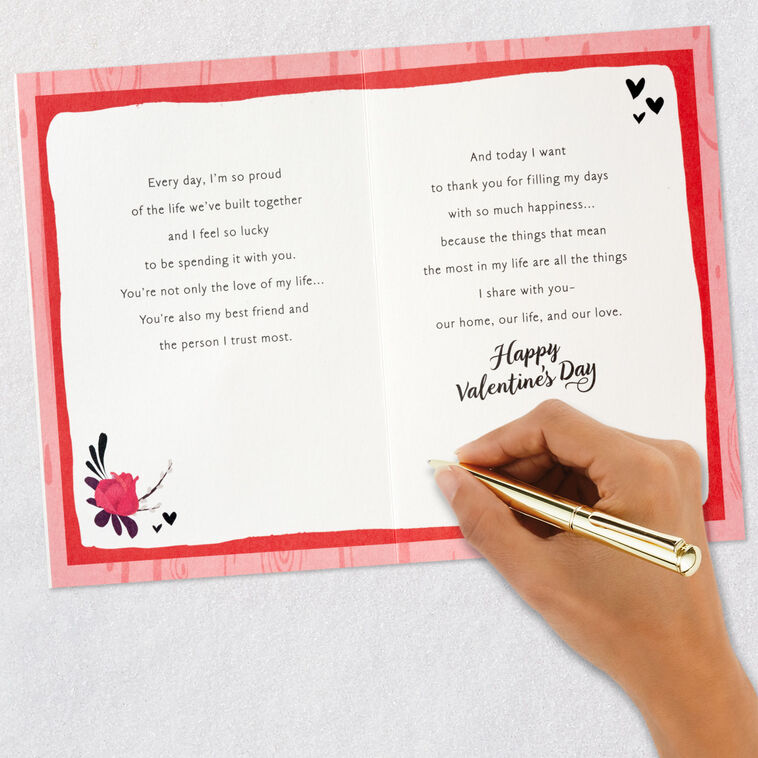 Every day, I'm so proud
of the life we've built together
and I feel so lucky
to be spending it with you.
You're not only the love of my life...
You're also my best friend and
the person I trust most.
And today I want
to thank you for filling my days
with so much happiness...
because the things that mean
the most in my life are all the things
I share with you–
our home, our life, and our love.
Happy
Valentine's Day